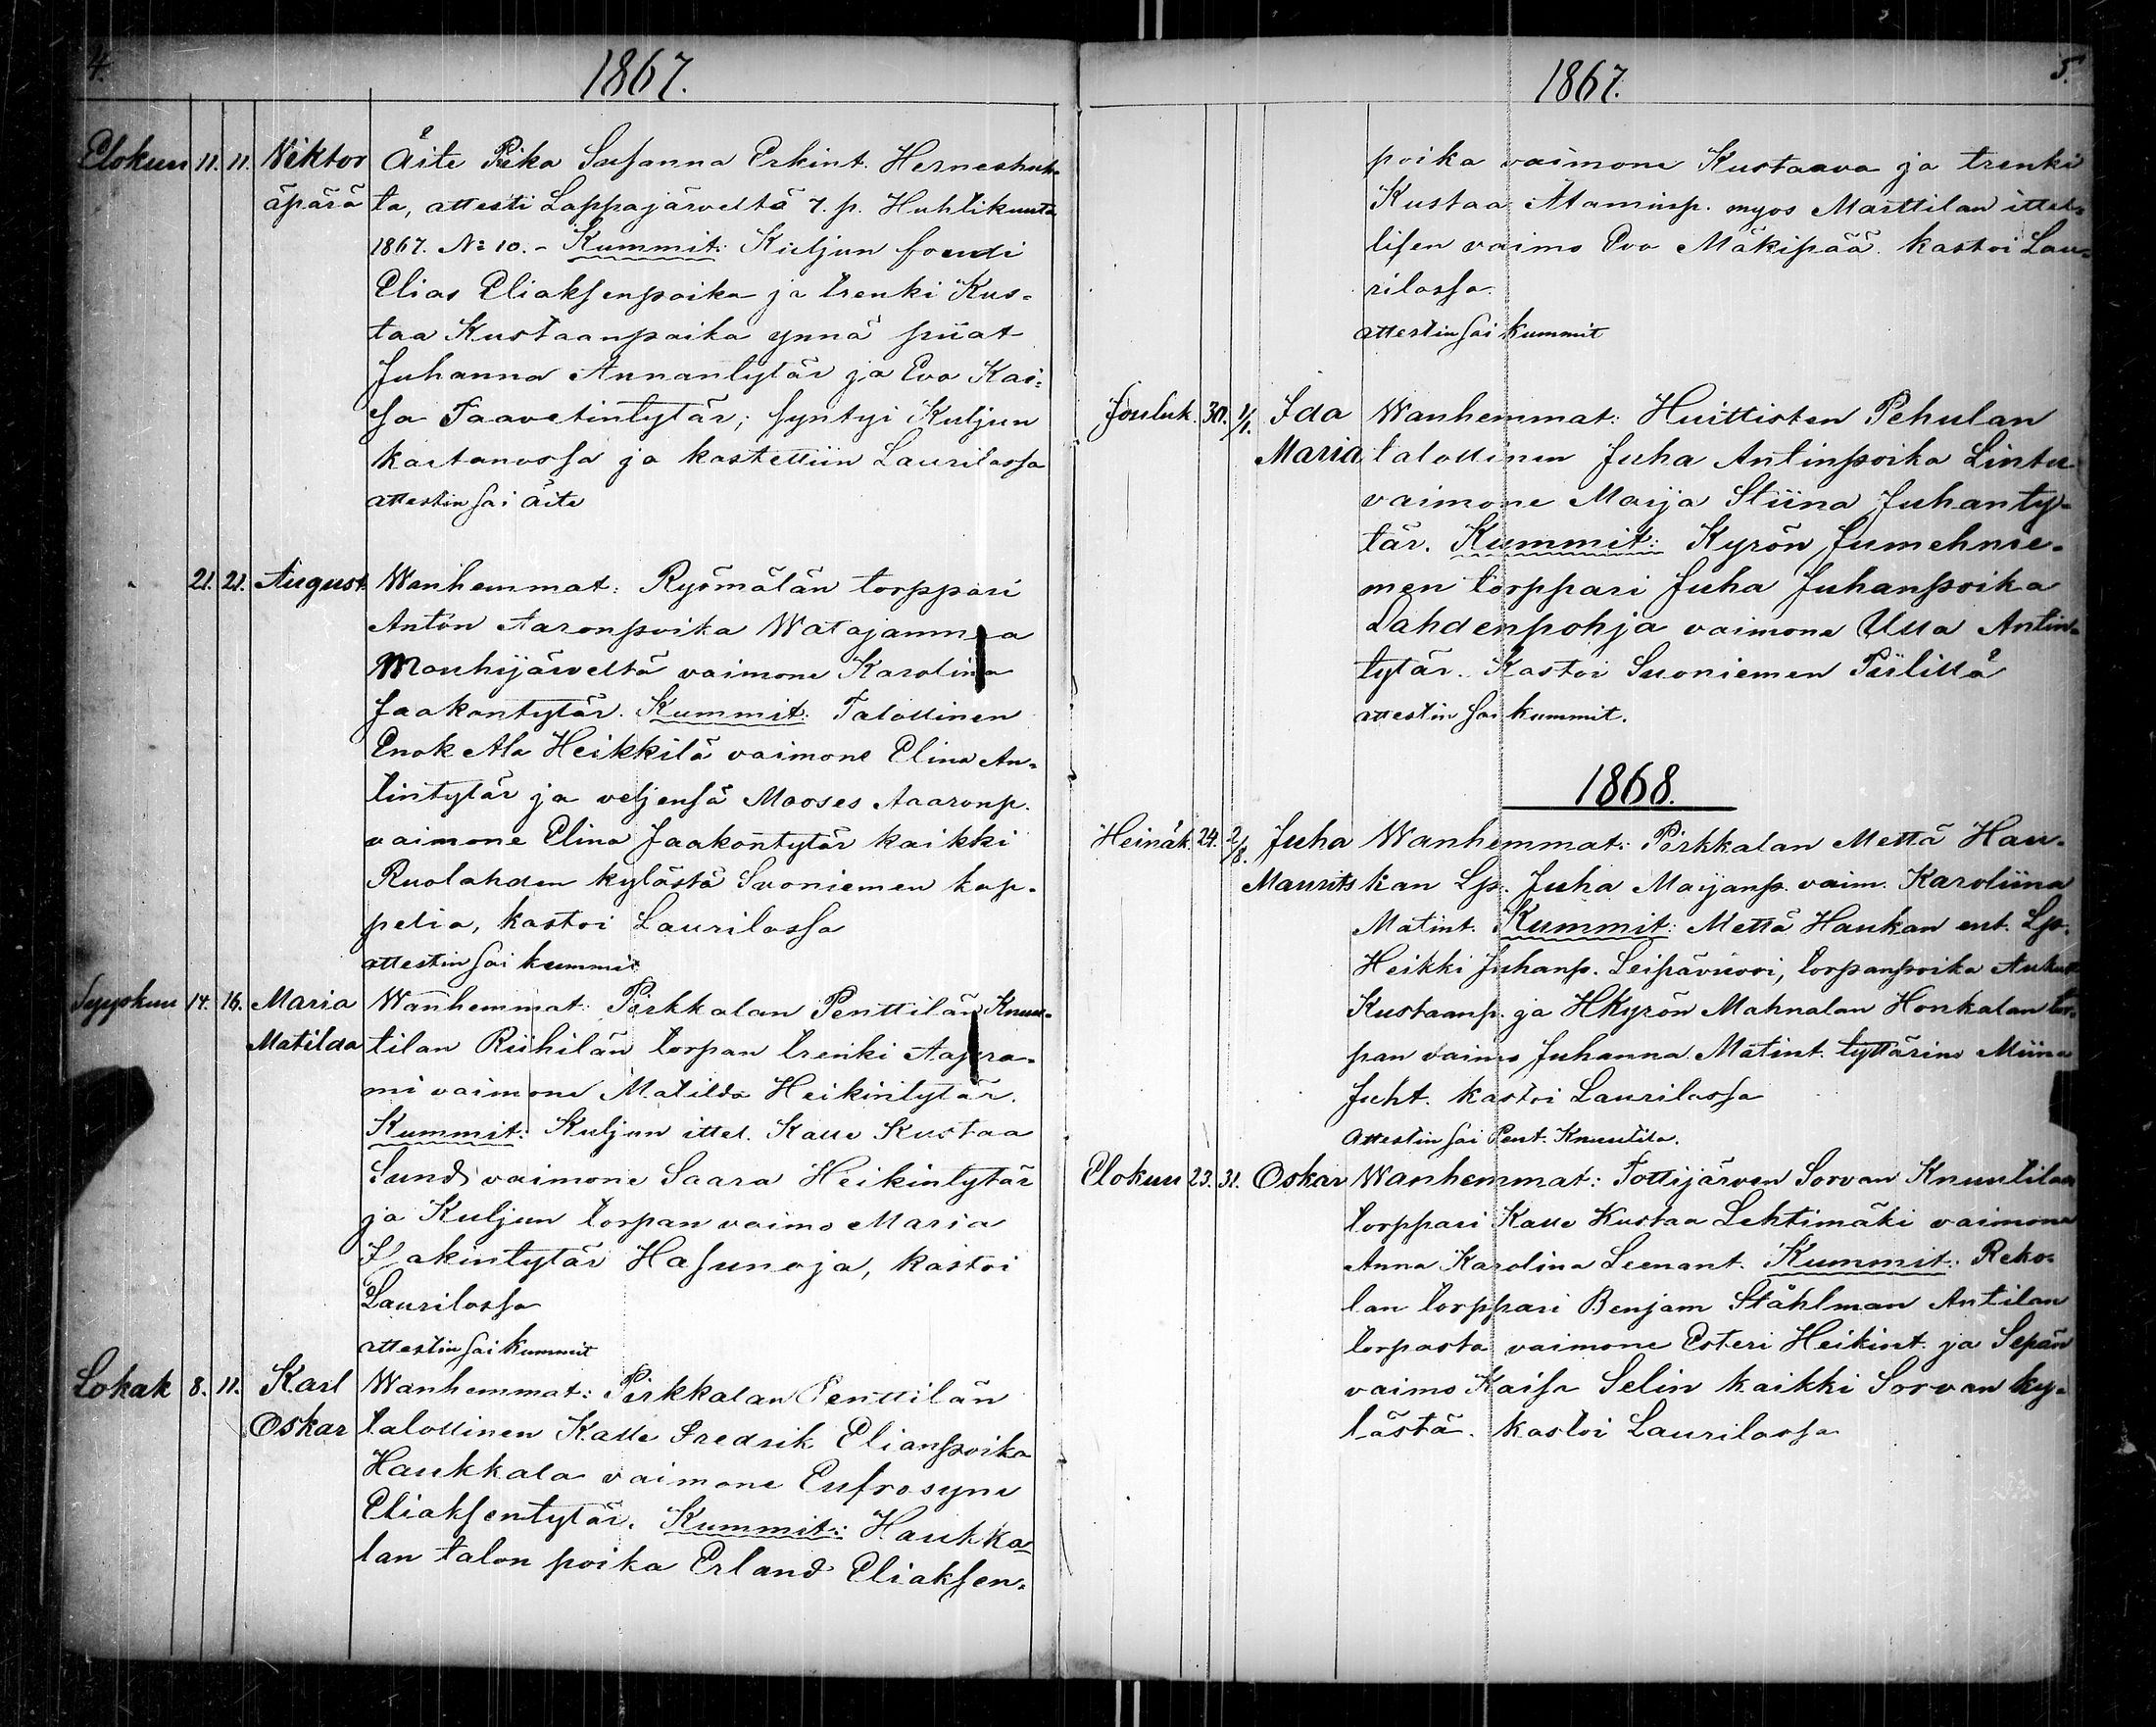 4.
1867.
Elokun 11. 11. Viktor Äite Piika Susanna Erkint. Herneshuh-
äpärä ta, attesti Lappajärveltä 7. p. Huhtikuuta
1867. No 10. - Kummit: Kuljun foudi
Elias Eliaksenpoika ja trenki Kus-
taa Kustaanpoika ynnä piiat
Juhanna Annantytär ja Eva Kai-
sa Taavetintytär; syntyi Kuljun
kartanossa ja kastettiin Laurilassa
attestin sai äite
21. 21. August Wanhemmat: Ryömälän torppari
Antön Aaronpoika Watajamnea
Mouhijärveltä vaimone Karolina
Jaakontytär. Kummit: Talollinen
Enok Ala Heikkilä vaimone Elina An-
tintytär ja veljensä Mooses Aaaronp.
vaimone Elina Jaakontytär kaikki
Ruolahden kylästä Suoniemen kap-
pelia, kastoi Laurilassa
attestin sai kummit
Syyskuu 14. 16. Maria Wanhemmat: Pirkkalan Penttilän Knuu-
Matilda tilan Riihilän torpan trenki Aapra-
mi vaimone Matilda Heikintytär.
Kummit: Kuljun ittel. Kalle Kustaa
Sund vaimone Saara Heikintytär
ja Kuljun torpan vaimo Maria
Isakintytär Hasunoja, kastoi
Laurilassa
attestin sai kummit
Lokak 8. 11. Karl Wanhemmat: Pirkkalan Penttilän
Oskar talollinen Kalle Fredrik Elianpoika
Haukkala vaimone Eufrosyne
Eliaksentytär. Kummit: Haukka-
lan talon poika Erland Eliaksen-
5.
1867.
poika vaimone Kustaava ja trenki
Kustaa Ataminp. myos Marttilan ittel-
lisen vaimo Eva Mäkipää. kastoi Lau-
rilassa.
attestin sai kummit
Jouluk. 30. 1/1. Ida Wanhemmat: Huittisten Pehulan
Maria talollinen Juha Antinpoika Lintu
vaimone Maija Stiina Juhanty-
tär. Kummit: Kyrön Jumehnie-
men torppari Juha Juhanpoika
Lahdenpohja vaimone Ulla Antin-
tytär. Kastoi Suoniemen Piilillä
attestin sai kummit.
1868.
Heinäk. 24. 2/8. Juha Wanhemmat: Pirkkalan Mettä Hau-
Maurits kan Lp. Juha Maijanp. vaim. Karoliina
Matint. Kummit: Mettä Haukan ent. Lp.
Heikki Juhanp. Leipävuori, torpanpoika Aukusti
Kustaanp. ja HKyrön Mahnalan Honkalan tor-
pan vaimo Juhanna Matint. tyttärine Miina
Juht. kastoi Laurilassa
Attestin sai Pent. Knuutila.
Elokuu 23. 31. Oskar Wanhemmat: Tottijärven Sorvan Knuutilan
torppari Kalle Kustaa Lehtimäki vaimone
Anna Karolina Leenant. Kummit: Reko-
lan torppari Benjam Ståhlman Antilan
torpasta vaimone Esteri Heikint. ja Sepän
vaimo Kaisa Selin kaikki Sorvan ky-
lästä. kastoi Laurilassa